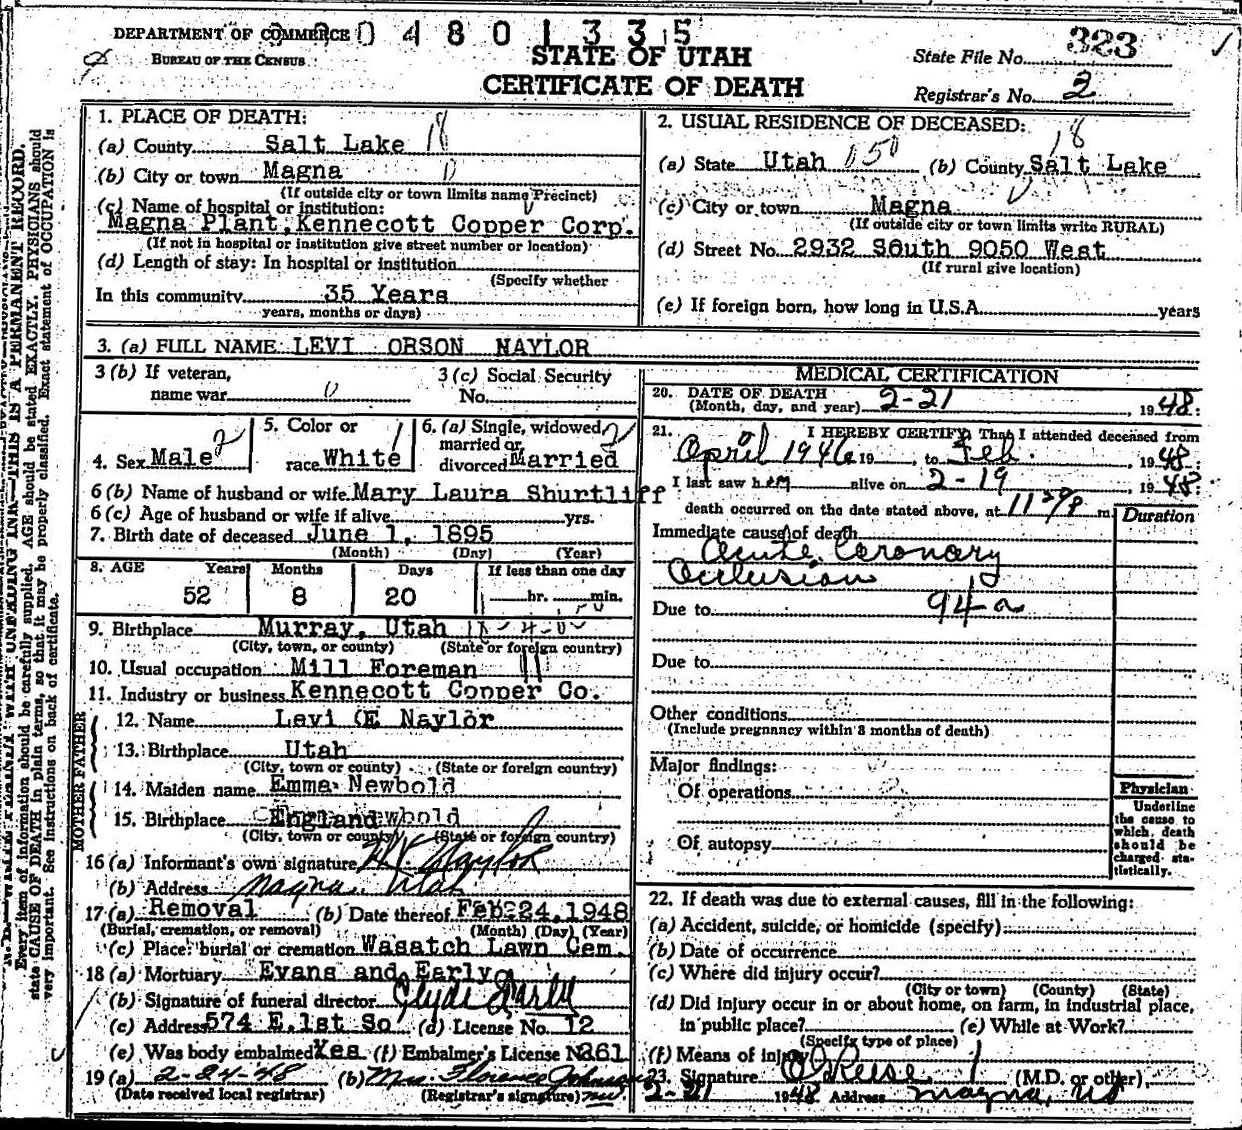 DEPARTMENT OF COMMERCE 0 4 8 0 1 3 3 5
BUREAU OF THE CENSUS
STATE OF UTAH
CERTIFICATE OF DEATH
State File No. 323
Registrar's No. 2
1. PLACE OF DEATH: 18
(a) County Salt Lake
(b) City or town Magna
(If outside city or town limits name Precinct)
(c) Name of hospital or institution:
Magna Plant, Kennecott Copper Corp.
(If not in hospital or institution give street number or location)
(d) Length of stay: In hospital or institution
(Specify whether
In this community 35 Years
years, months or days)
2. USUAL RESIDENCE OF DECEASED: 18
(a) State Utah 050 (b) County Salt Lake
(c) City or town Magna
(If outside city or town limits write RURAL)
(d) Street No. 2932 South 9050 West
(If rural give location)
(e) If foreign born, how long in U.S.A. years
3. (a) FULL NAME LEVI ORSON NAYLOR
3 (b) If veteran,
name war 0
3 (c) Social Security
No.
4. Sex Male 2
5. Color or
race White 1
6. (a) Single, widowed 2
married or
divorced Married
6 (b) Name of husband or wife Mary Laura Shurtliff
6 (c) Age of husband or wife if alive yrs.
7. Birth date of deceased June 1, 1895
(Month) (Day) (Year)
8. AGE Years Months Days If less than one day
52 8 20 hr. min.
9. Birthplace Murray, Utah
(City, town, or county) (State or foreign country)
10. Usual occupation Mill Foreman
11. Industry or business Kennecott Copper Co.
FATHER
12. Name Levi E Naylor
13. Birthplace Utah
(City, town or county) (State or foreign country)
MOTHER
14. Maiden name Emma Newbold
15. Birthplace England
(City, town or county) (State or foreign country)
16 (a) Informant's own signature Naylor
(b) Address Magna Utah
17 (a) Removal (b) Date thereof Feb. 24, 1948
(Burial, cremation, or removal) (Month) (Day) (Year)
(c) Place: burial or cremation Wasatch Lawn Cem.
18 (a) Mortuary Evans and Early
(b) Signature of funeral director Clyde Early
(c) Address 574 E. 1st So. (d) License No. 12
(e) Was body embalmed Yes (f) Embalmer's License No. 361
19 (a) 2-24-48 (b) Mrs. Florence Johnson
(Date received local registrar) (Registrar's signature)
MEDICAL CERTIFICATION
20. DATE OF DEATH
(Month, day, and year) 2-21, 1948
21. I HEREBY CERTIFY, That I attended deceased from
April 1946 19 , to Feb. , 1948
I last saw him alive on 2-19 , 1948
death occurred on the date stated above, at 11 P m. Duration
Immediate cause of death
Acute Coronary
Occlusion
Due to 94a
Due to
Other conditions
(Include pregnancy within 3 months of death)
Major findings:
Of operations
Of autopsy
Physician
Underline
the cause to
which death
should be
charged sta-
tistically.
22. If death was due to external causes, fill in the following:
(a) Accident, suicide, or homicide (specify)
(b) Date of occurrence
(c) Where did injury occur?
(City or town) (County) (State)
(d) Did injury occur in or about home, on farm, in industrial place,
in public place? (e) While at Work?
(Specify type of place)
(f) Means of injury
23. Signature (M.D. or other)
2-21 1948 Address Magna, Ut
Every item of information should be carefully supplied. AGE should be stated EXACTLY. PHYSICIANS should
state CAUSE OF DEATH in plain terms, so that it may be properly classified. Exact statement of OCCUPATION is
very important. See instructions on back of certificate.